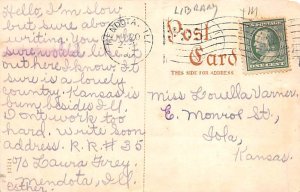 Hello, I'm slow
but sure about
writing. You
sure would like it
out here I know it
sure is a lovely
county. Kansas is
bum besides Ill.
Don't work too
hard. write soon
address. R.R. #25
c/o Laura Grey.
Mendota, Ill.
Esther.
MENDOTA, ILL.
LIBRARY
Post
Card
THIS SIDE FOR ADDRESS
Miss Louella Varner,
E. Monroe St,
Iola,
Kansas.